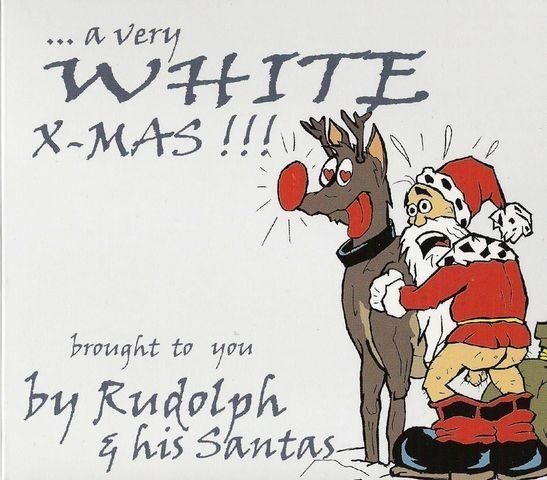 ... a very
WHITE
X-MAS !!!
brought to you
by Rudolph
& his Santas